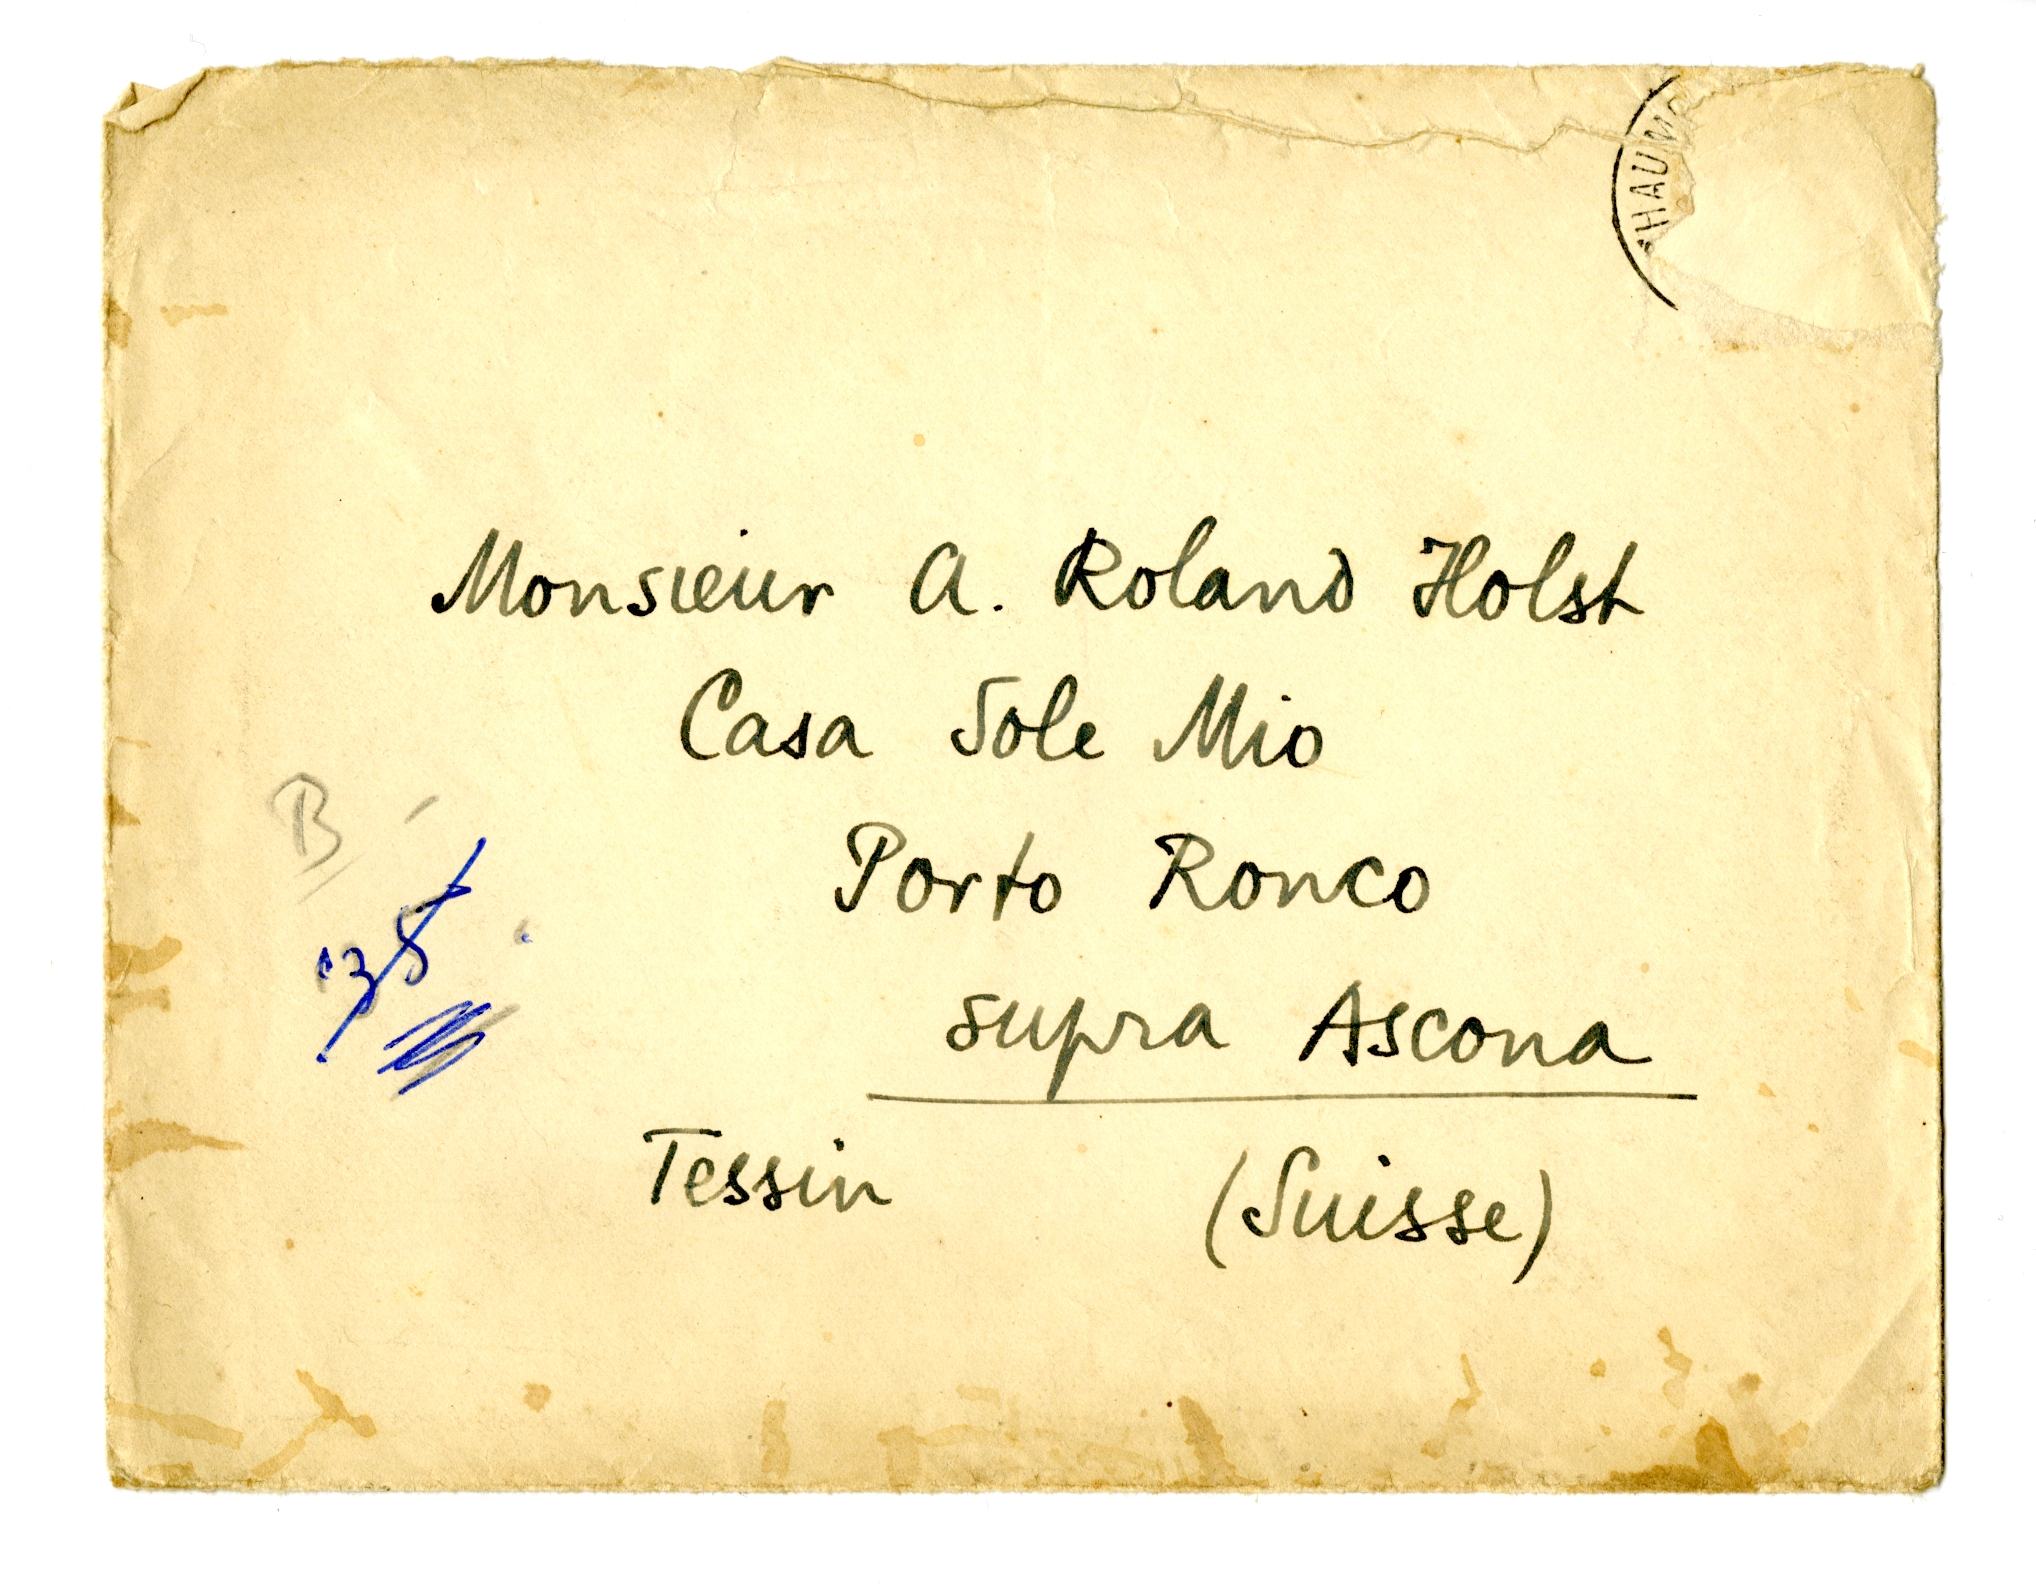 HAUM
Monsieur A. Roland Holst
Casa Sole Mio
Porto Ronco
supra Ascona
Tessin (Suisse)
B
'38